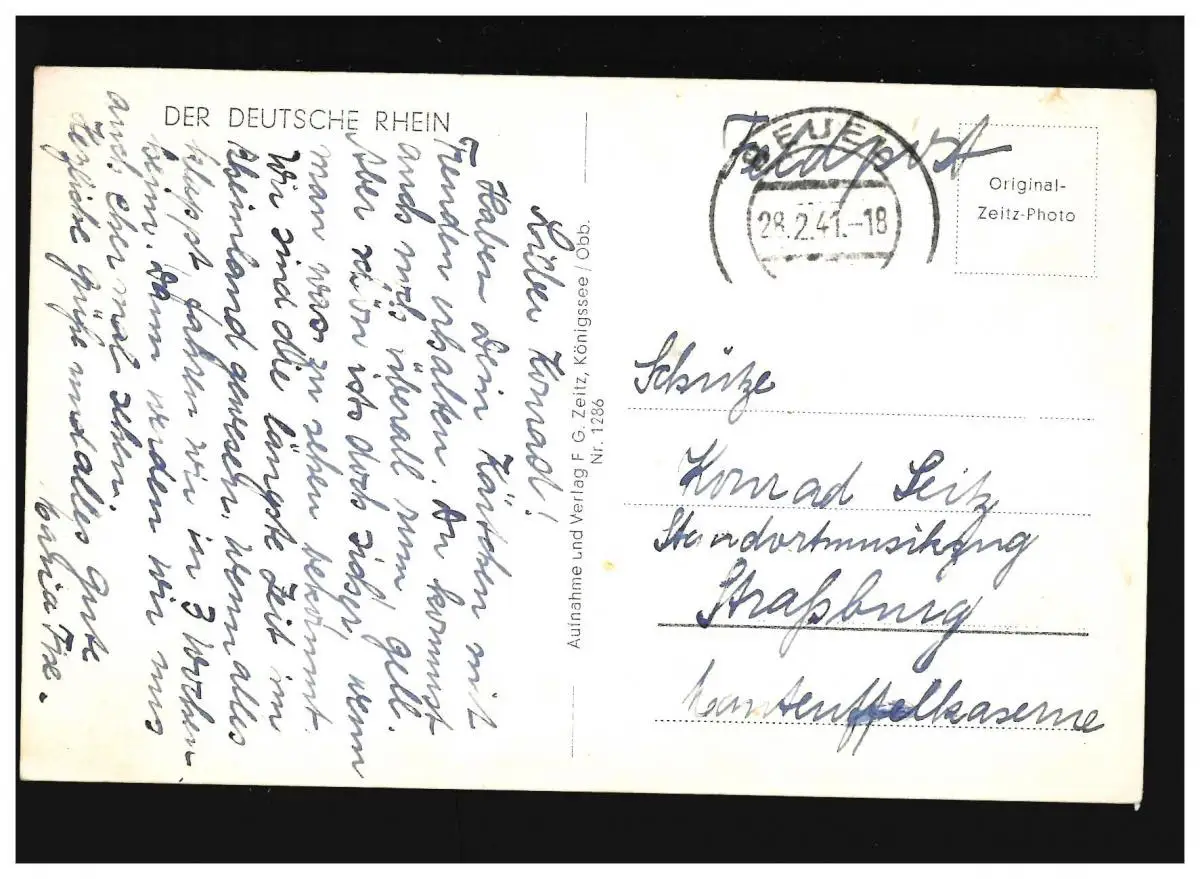 DER DEUTSCHE RHEIN
Lieber Konrad!
Haben Dein Kärtchen mit
Freuden erhalten. Du kommst
auch noch überall rum gell.
Aber schön ists doch sicher, wenn
man was zu sehen bekommt.
Wir sind die längste Zeit im
Rheinland gewesen. Wenn alles
klappt fahren wir in 3 Wochen
heim. Dann werden wir uns
auch eher mal sehen.
Herzliche Grüße und alles Gute
Aufnahme und Verlag F. G. Zeitz, Königssee/Obb.
Nr. 1286
Feldpost
28.2.41.-18
Original-
Zeitz-Photo
Schütze
Konrad Seitz
Standortmusikzug
Straßburg
Manteuffelkaserne